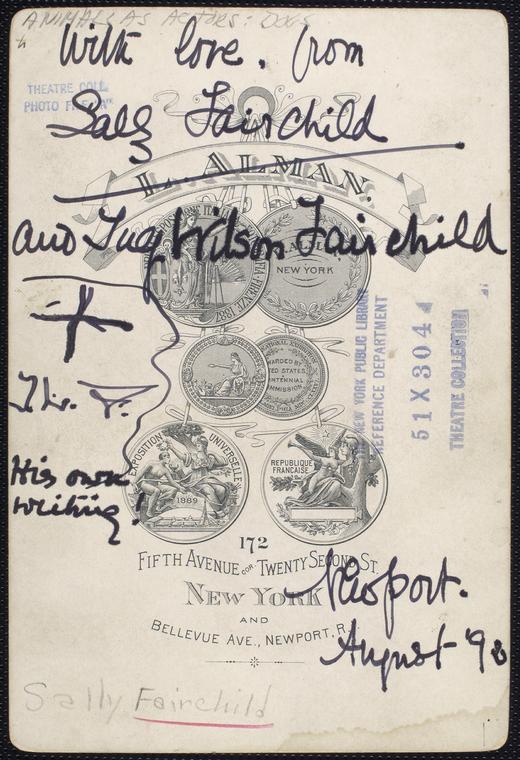 ANIMALS AS ACTORS: DOGS
With love. from
THEATRE COLL.
PHOTO
Sally Fairchild
L. ALMAN.
and Tug Wilson Fairchild
FIRENZE 1887
NEW YORK
AWARDED BY
UNITED STATES
CENTENNIAL
COMMISSION
T. W. F.
His own
writing!
EXPOSITION UNIVERSELLE
1889
REPUBLIQUE
FRANCAISE
NEW YORK PUBLIC LIBRARY
REFERENCE DEPARTMENT
51X304
THEATRE COLLECTION
172
FIFTH AVENUE COR TWENTY SECOND ST.
NEW YORK
AND
BELLEVUE AVE., NEWPORT, R.I.
Newport.
August '90
Sally Fairchild